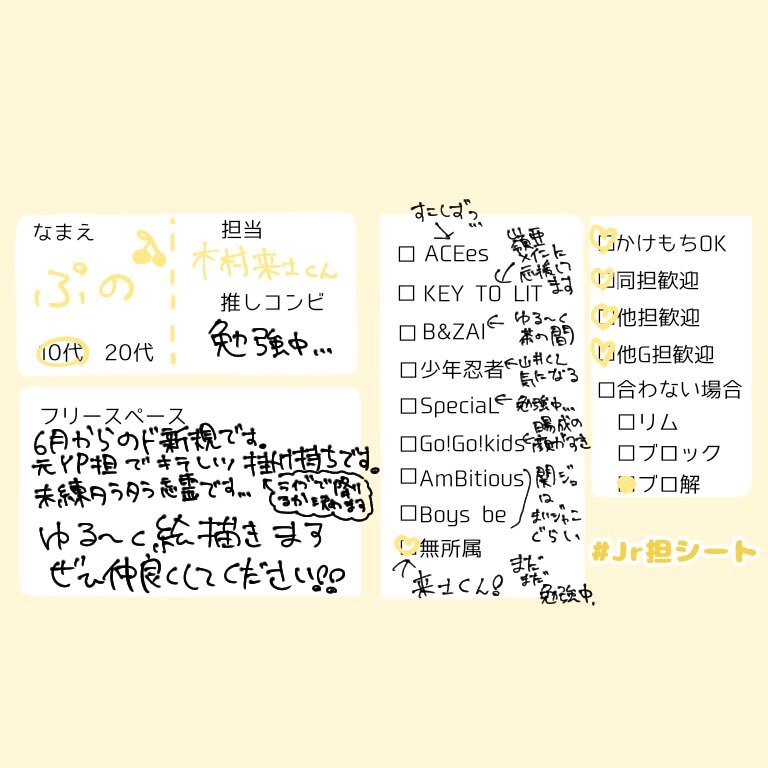 なまえ
ぷの
10代 20代
担当
木村来士くん
推しコンビ
勉強中…
フリースペース
6月からのド新規です。
元YP担でキラしいツ掛け持ちです。
未練タラタラ悪霊です…
ライブで降り
るかを決めます
ゆる〜く絵描きます
ぜひ仲良くしてください!!
すこしずつ…
□ ACEes
□ KEY TO LIT
メインに
応援して
ます
□ B&ZAI
ゆる〜く
茶の間
□ 少年忍者
気になる
□ SpeciaL
勉強中…
□ Go!Go!kids
陽成の
顔がすき
□ AmBitious
□ Boys be
関ジュ
は
まいジャニ
ぐらい
□ 無所属
来士くん!
まだ
まだ
勉強中.
□かけもちOK
□同担歓迎
□他担歓迎
□他G担歓迎
□合わない場合
□リム
□ブロック
□ブロ解
#Jr担シート